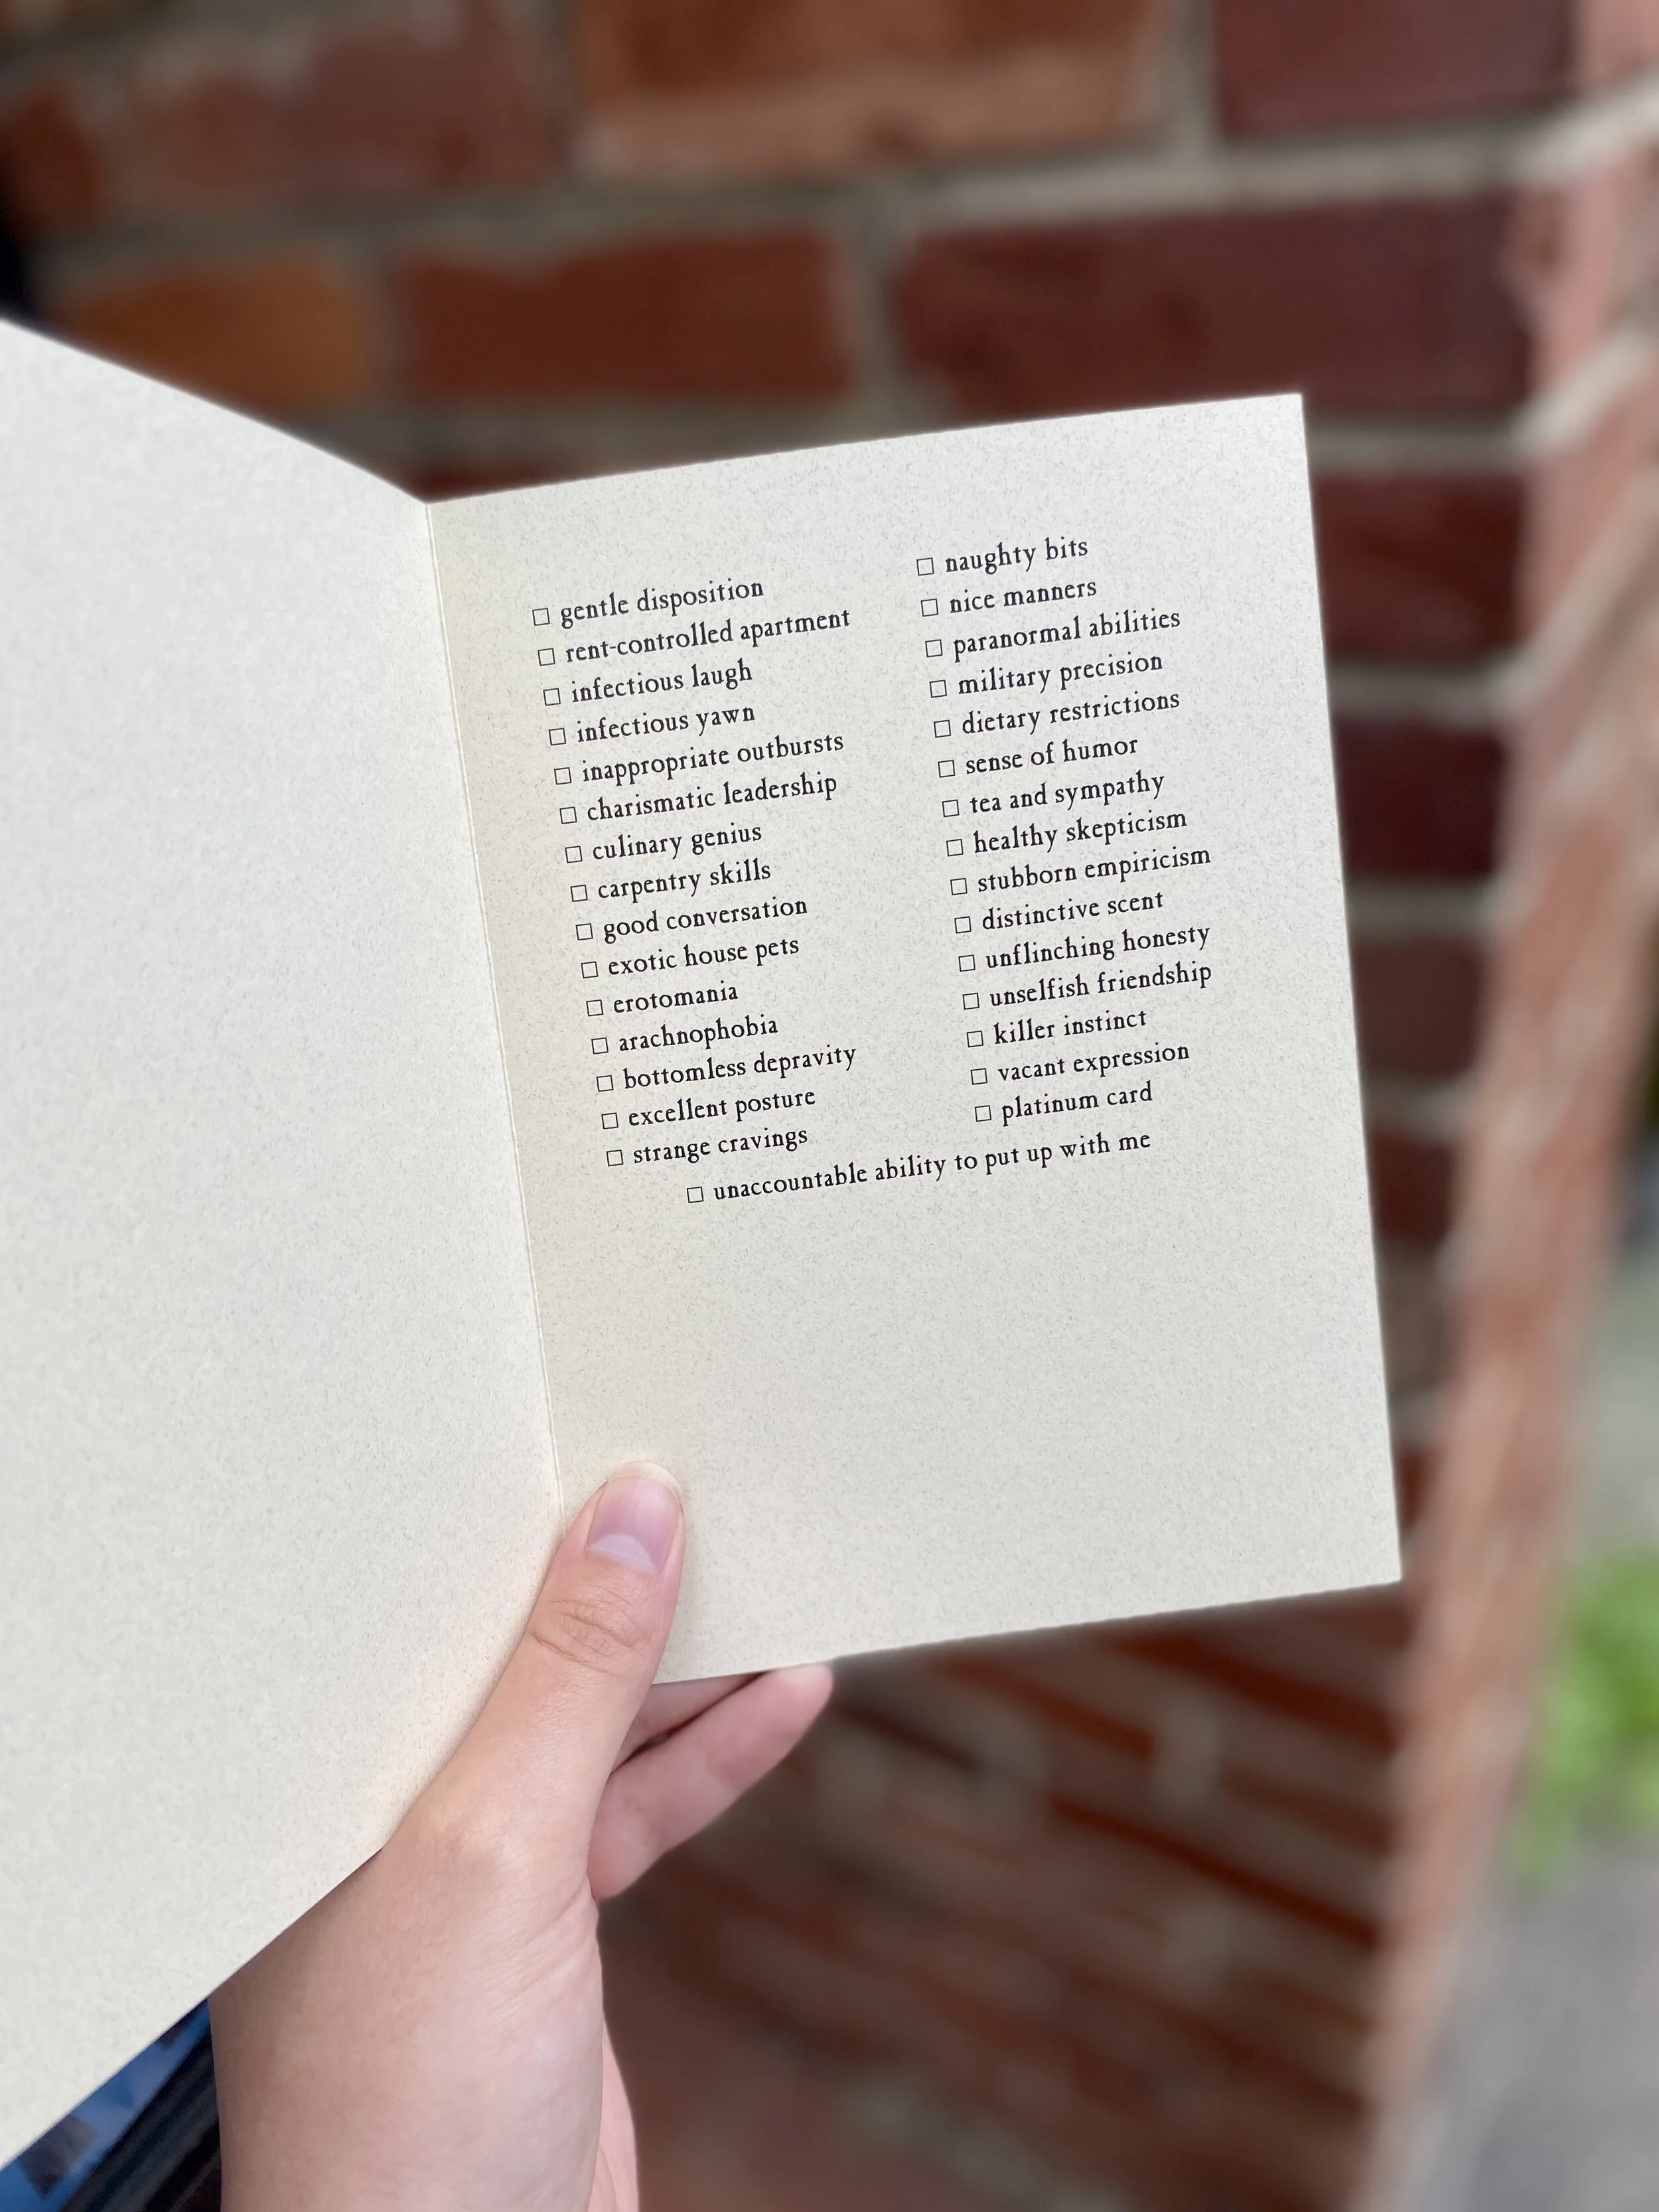 ☐ gentle disposition
☐ rent-controlled apartment
☐ infectious laugh
☐ infectious yawn
☐ inappropriate outbursts
☐ charismatic leadership
☐ culinary genius
☐ carpentry skills
☐ good conversation
☐ exotic house pets
☐ erotomania
☐ arachnophobia
☐ bottomless depravity
☐ excellent posture
☐ strange cravings
☐ naughty bits
☐ nice manners
☐ paranormal abilities
☐ military precision
☐ dietary restrictions
☐ sense of humor
☐ tea and sympathy
☐ healthy skepticism
☐ stubborn empiricism
☐ distinctive scent
☐ unflinching honesty
☐ unselfish friendship
☐ killer instinct
☐ vacant expression
☐ platinum card
☐ unaccountable ability to put up with me